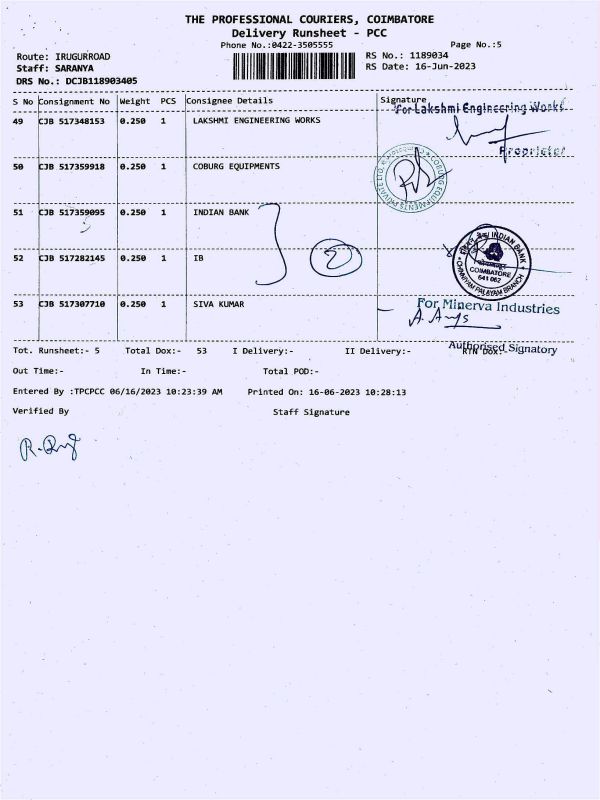 THE PROFESSIONAL COURIERS, COIMBATORE
Delivery Runsheet - PCC
Phone No.:0422-3505555 Page No.:5
Route: IRUGURROAD RS No.: 1189034
Staff: SARANYA RS Date: 16-Jun-2023
DRS No.: DCJB118903405
S No Consignment No Weight PCS Consignee Details Signature
For Lakshmi Engineering Works
49 CJB 517348153 0.250 1 LAKSHMI ENGINEERING WORKS
Proprietor
50 CJB 517359918 0.250 1 COBURG EQUIPMENTS
COBURG EQUIPMENTS PRIVATE LTD.
51 CJB 517359095 0.250 1 INDIAN BANK
2
INDIAN BANK
COIMBATORE
641 062
CHINNIYAM PALAYAM BRANCH
52 CJB 517282145 0.250 1 IB
53 CJB 517307710 0.250 1 SIVA KUMAR
For Minerva Industries
Authorised Signatory
Tot. Runsheet:- 5 Total Dox:- 53 I Delivery:- II Delivery:- RTN Dox:-
Out Time:- In Time:- Total POD:-
Entered By :TPCPCC 06/16/2023 10:23:39 AM Printed On: 16-06-2023 10:28:13
Verified By Staff Signature